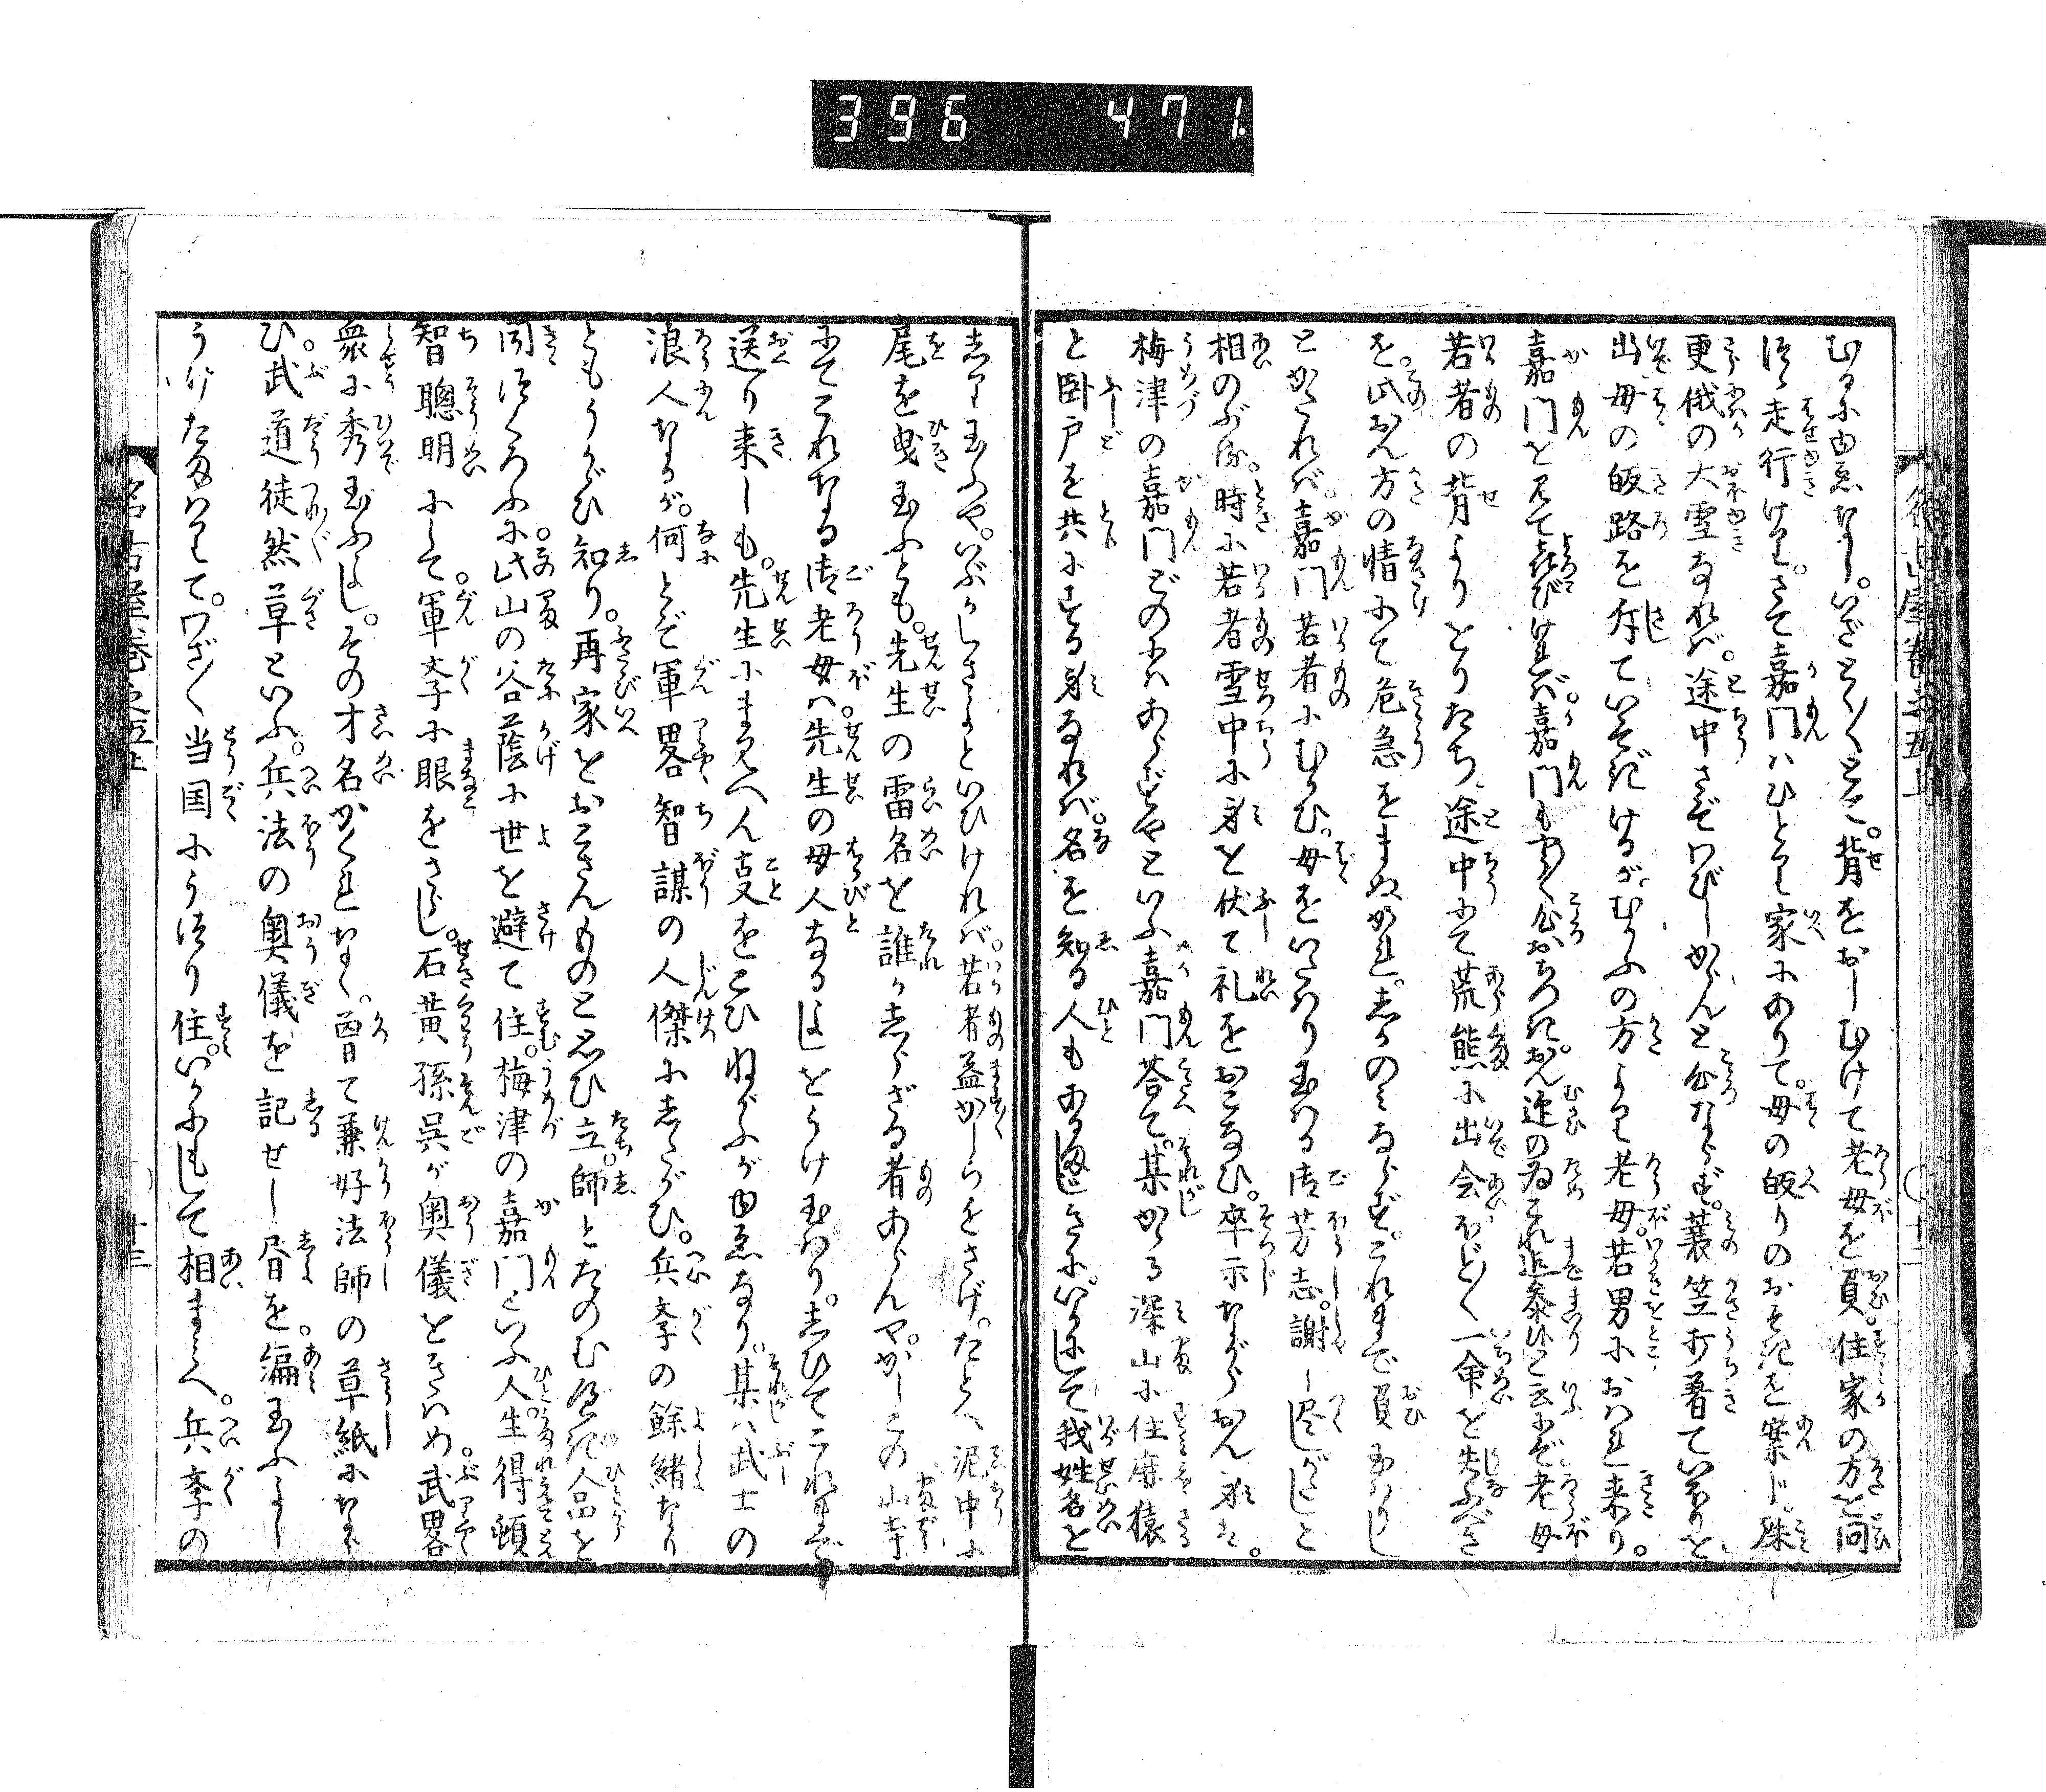 396 471
むるに由ゑなし。いざとく〳〵とて。背をおしむけて老母を負。住家の方を問
つゝ走行けり。さて嘉門ハひとり家にありて。母の皈りのおそきを案じ。殊に
更俄の大雪なれバ。途中さぞわびしからんと心ならず。蓑笠打着ていほりを
出母の皈路を有ていそぎけるが。むかふの方より老母。若男におはれ来り。
嘉門を見て喜びけれバ。嘉門も少く心おちつき。おん迎の為これ迄参りと云にぞ老母
若者の背よりとりたち。途中にて荒熊に出会ほど〳〵一命を失ふべき
を。此おん方の情にて危急をまぬかれ。しかのミならず。これまで負玉はりし
とかたれバ。嘉門若者にむかひ。母をいたはり玉はる御芳志。謝し尽しがたしと
相のぶる。時に若者雪中に身を伏て礼をおこなひ。卒示ながらおん身ハ。
梅津の嘉門どのにハあらずやといふ嘉門答て。某かゝる深山に住麻猿
と臥戸を共にする身なれバ。名を知る人もあるまじきに。いかにして我姓名を
しり玉ふや。いぶかしさよといひけれバ。若者益かしらをさげ。たとへ泥中に
尾を曳玉ふとも。先生の雷名を誰かしらざる者あらんや。かしこの山寺
にてこれなる御老母ハ。先生の母人なるよしをうけ玉はり。しひてこれまで
送り来しも。先生にまみへん事をこひねがふが由ゑなり。某ハ武士の
浪人なるが。何とぞ軍畧智謀の人傑にしたがひ。兵学の餘緒なり
ともうかゞひ知り。再家をおこさんものと思ひ立。師とたのむべき人品を
聞つくろふに。此山の谷蔭に世を避て住。梅津の嘉門といふ人。生得頓
智聰明にして。軍学に眼をさらし。石黄孫呉が奥儀をきハめ。武畧
衆に秀玉ふよし。その才名かくれなく。曽て兼好法師の草紙にならひ
ひ。武道徒然草といふ。兵法の奥儀を記せし書を。編玉ふよし
うけたまハりて。わざ〳〵当国にうつり住。いかにもして相まミへ。兵学の